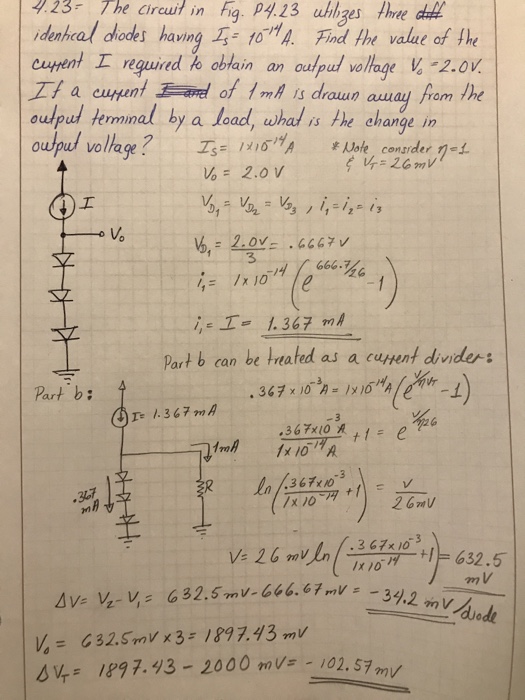 4.23- The circuit in Fig. P4.23 utilizes three diff
identical diodes having Is = 10^-14 A. Find the value of the
current I required to obtain an output voltage Vo = 2.0V.
If a current I and of 1 mA is drawn away from the
output terminal by a load, what is the change in
output voltage?
Is = 1x10^-14 A
* Note consider η=1
& VT = 26mV
Vo = 2.0 V
I
Vo
VD1 = VD2 = VD3, i1 = i2 = i3
VD1 = 2.0V/3 = .6667V
i1 = 1x10^-14 (e^666.7/26 -1)
i1 = I = 1.367 mA
Part b can be treated as a current divider:
Part b:
I= 1.367mA
1mA
R
.367 mA
.367x10^-3 A = 1x10^-14 A (e^V/ηVT -1)
.367x10^-3 A / 1x10^-14 A +1 = e^V/η26
ln(.367x10^-3 / 1x10^-14 +1) = V / 26mV
V= 26 mV ln(.367x10^-3 / 1x10^-14 +1) = 632.5 mV
ΔV= V2-V1= 632.5mV-666.67mV = -34.2 mV/diode
Vo = 632.5mV x 3 = 1897.43 mV
ΔVT = 1897.43 - 2000 mV = -102.57mV